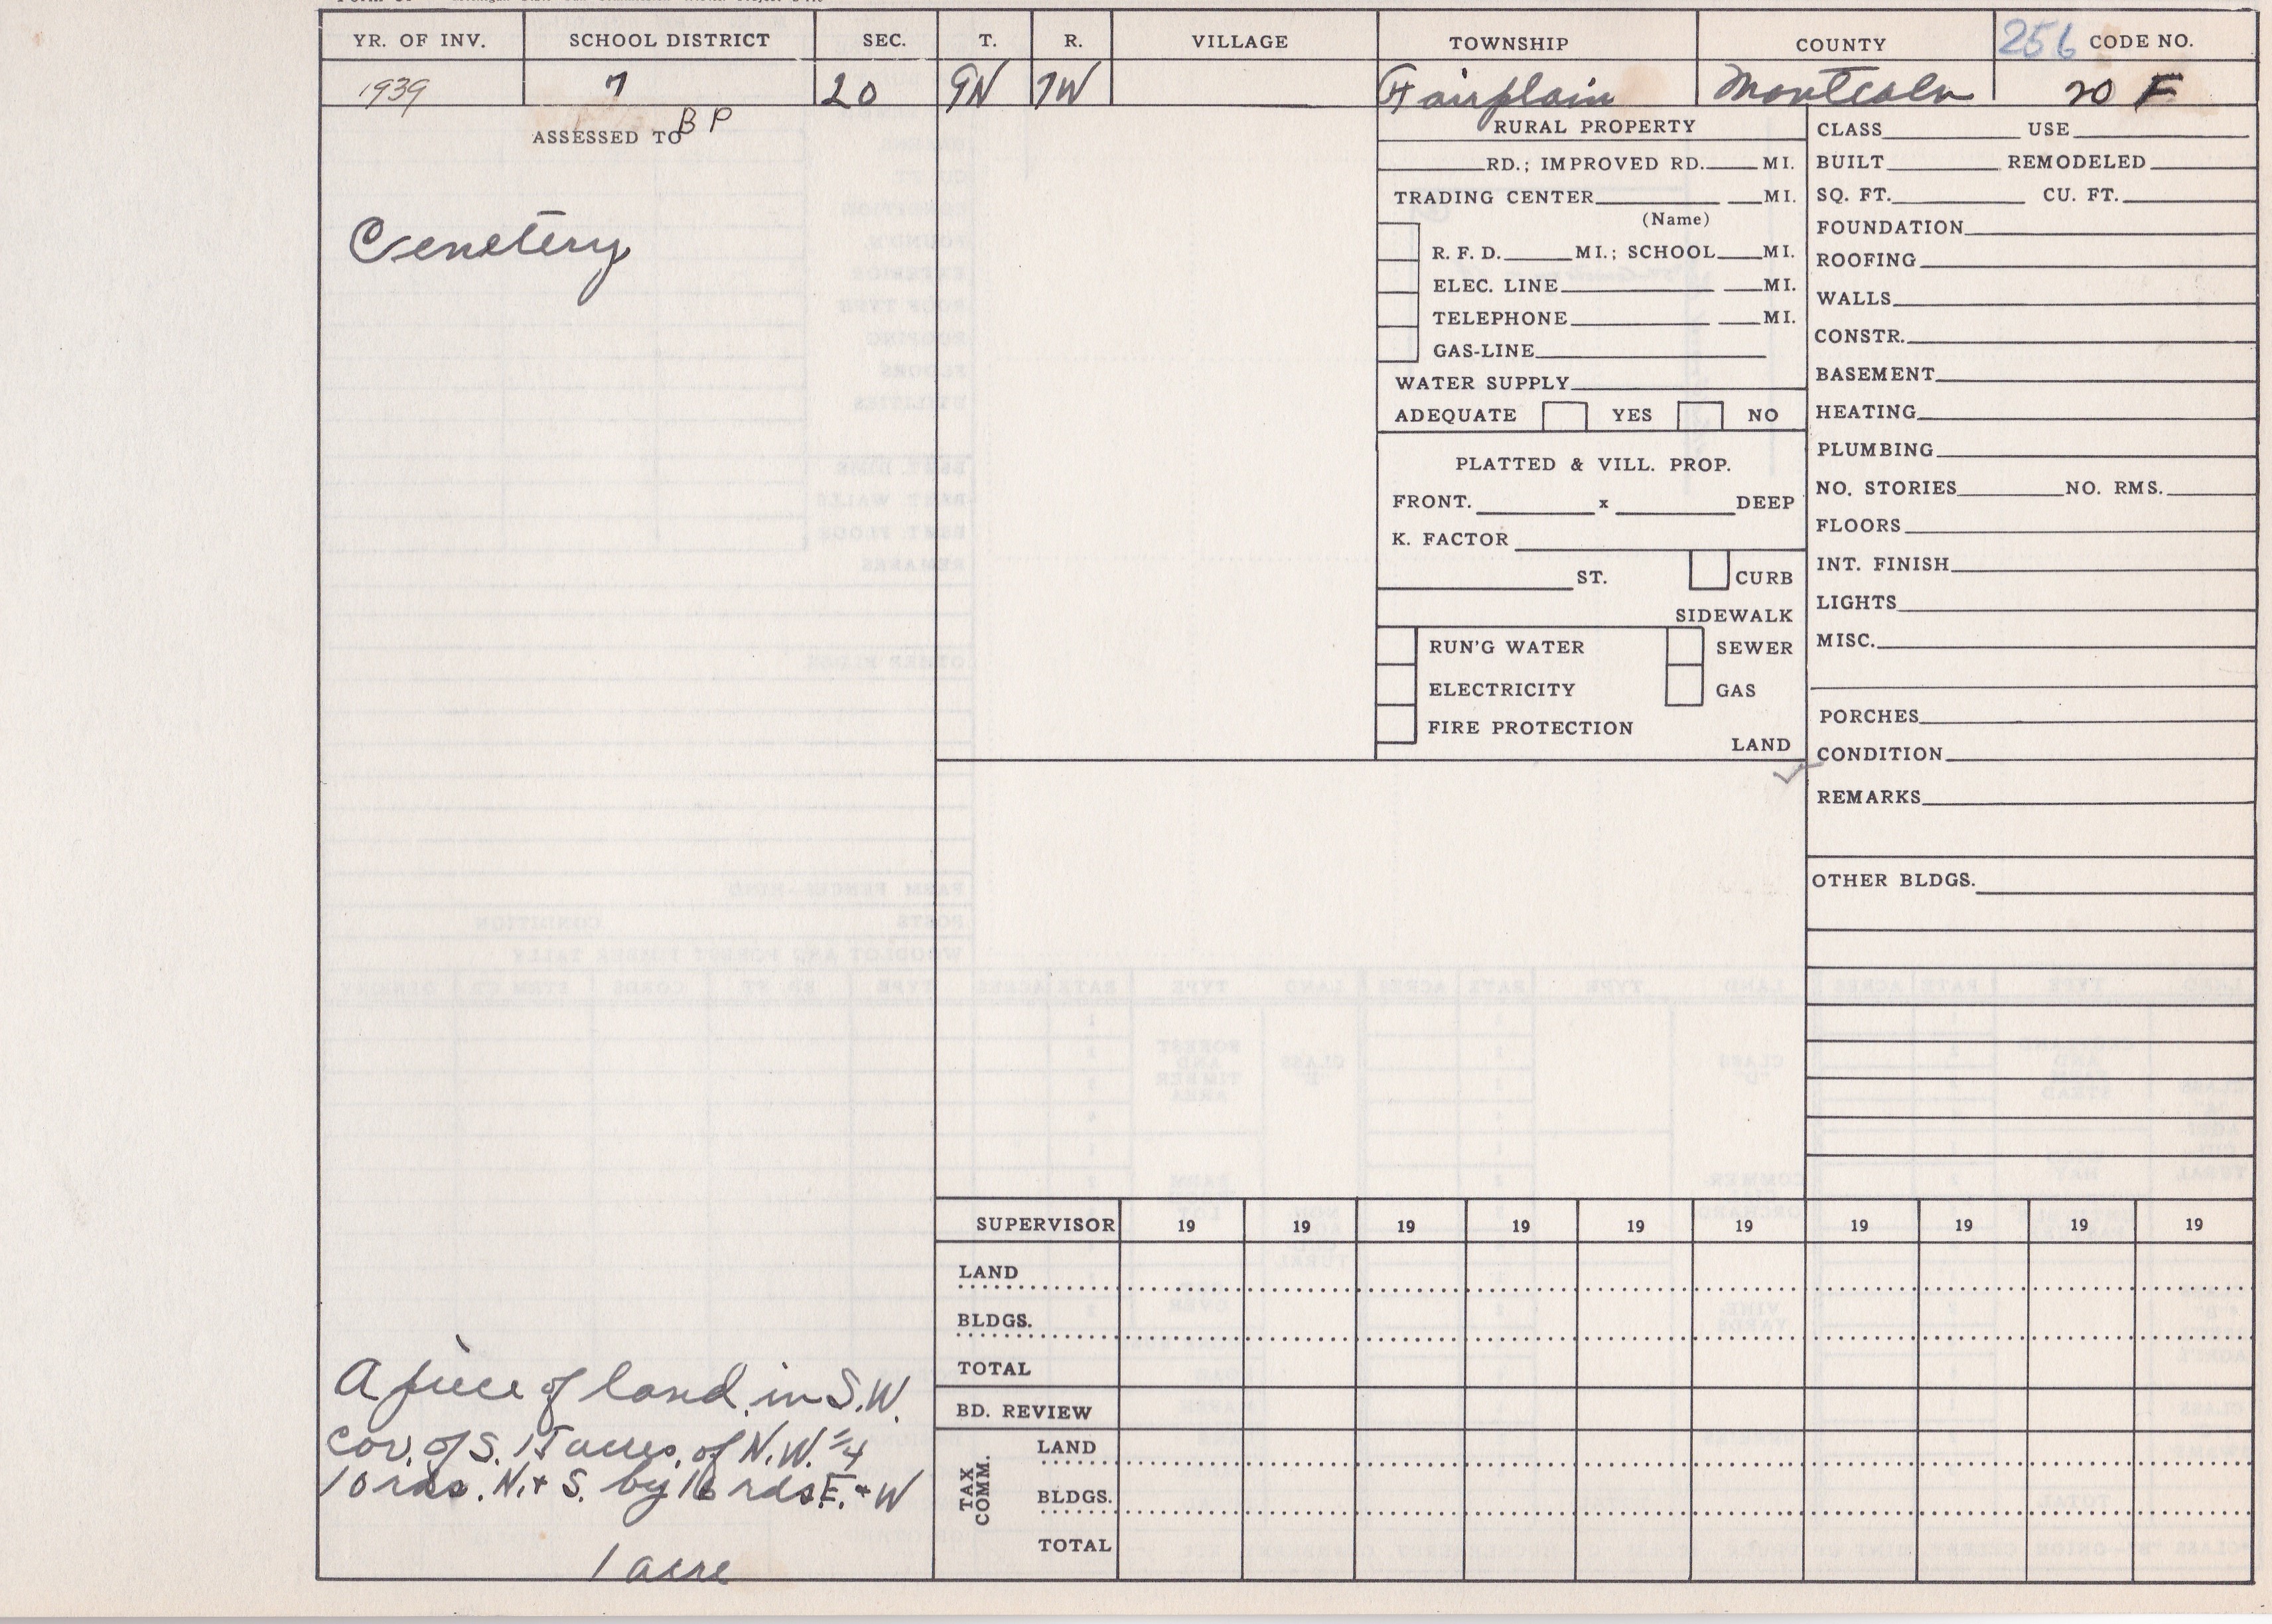 YR. OF INV. SCHOOL DISTRICT SEC. T. R. VILLAGE TOWNSHIP COUNTY 256 CODE NO.
1939 7 20 9N 7W Fairplain Montcalm 20 F
ASSESSED TO BP
Cemetery
A piece of land in S.W.
cor. of S. 15 acres of N.W. 1/4
10 rds. N. + S. by 16 rds E. + W
1 acre
RURAL PROPERTY
RD.; IMPROVED RD. MI.
TRADING CENTER MI.
(Name)
R. F. D. MI.; SCHOOL MI.
ELEC. LINE MI.
TELEPHONE MI.
GAS-LINE
WATER SUPPLY
ADEQUATE YES NO
PLATTED & VILL. PROP.
FRONT. x DEEP
K. FACTOR
ST. CURB
SIDEWALK
RUN'G WATER SEWER
ELECTRICITY GAS
FIRE PROTECTION
LAND
CLASS USE
BUILT REMODELED
SQ. FT. CU. FT.
FOUNDATION
ROOFING
WALLS
CONSTR.
BASEMENT
HEATING
PLUMBING
NO. STORIES NO. RMS.
FLOORS
INT. FINISH
LIGHTS
MISC.
PORCHES
CONDITION
REMARKS
OTHER BLDGS.
SUPERVISOR 19 19 19 19 19 19 19 19 19 19
LAND
BLDGS.
TOTAL
BD. REVIEW
TAX COMM.
LAND
BLDGS.
TOTAL